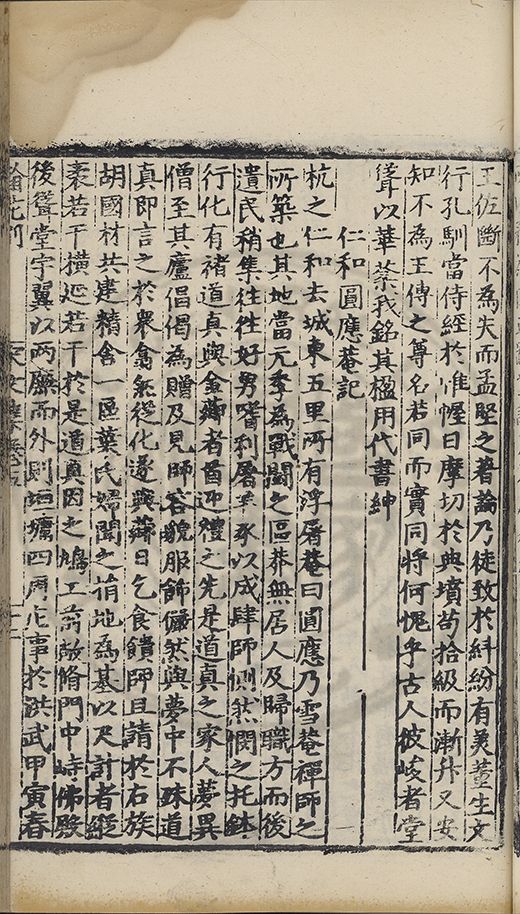 王佐斷不為失而孟堅之著論乃徒致於糾紛有美董生文
行孔馴當侍經於帷幄日摩切於典墳苟拾級而漸升又安
知不為王傅之尊名若同而實同將何愧乎古人彼峻者堂
聳以華榮我銘其楹用代書紳
仁和圓應菴記
杭之仁和去城東五里所有浮屠菴曰圓應乃雪菴禪師之
所築也其地當元季為戰鬭之區莽無居人及歸職方而後
遺民稍集往往好勇嗜利屠羊豕以成肆師惻然閔之托鉢
行化有禇道真與金薌者首迎禮之先是道真之家人夢異
僧至其廬倡偈為贈及見師容貌服飾儼然與夢中不殊道
真即言之於衆翕然從化遂與薌日乞食饋師且請於右族
胡國材共建精舍一區葉氏婦聞之捐地為基以尺計者縱
袤若干橫延若干於是道真因之鳩工前敞脩門中峙佛殿
後聳堂宇翼以兩廡而外則垣墉四周庀事於洪武甲寅春